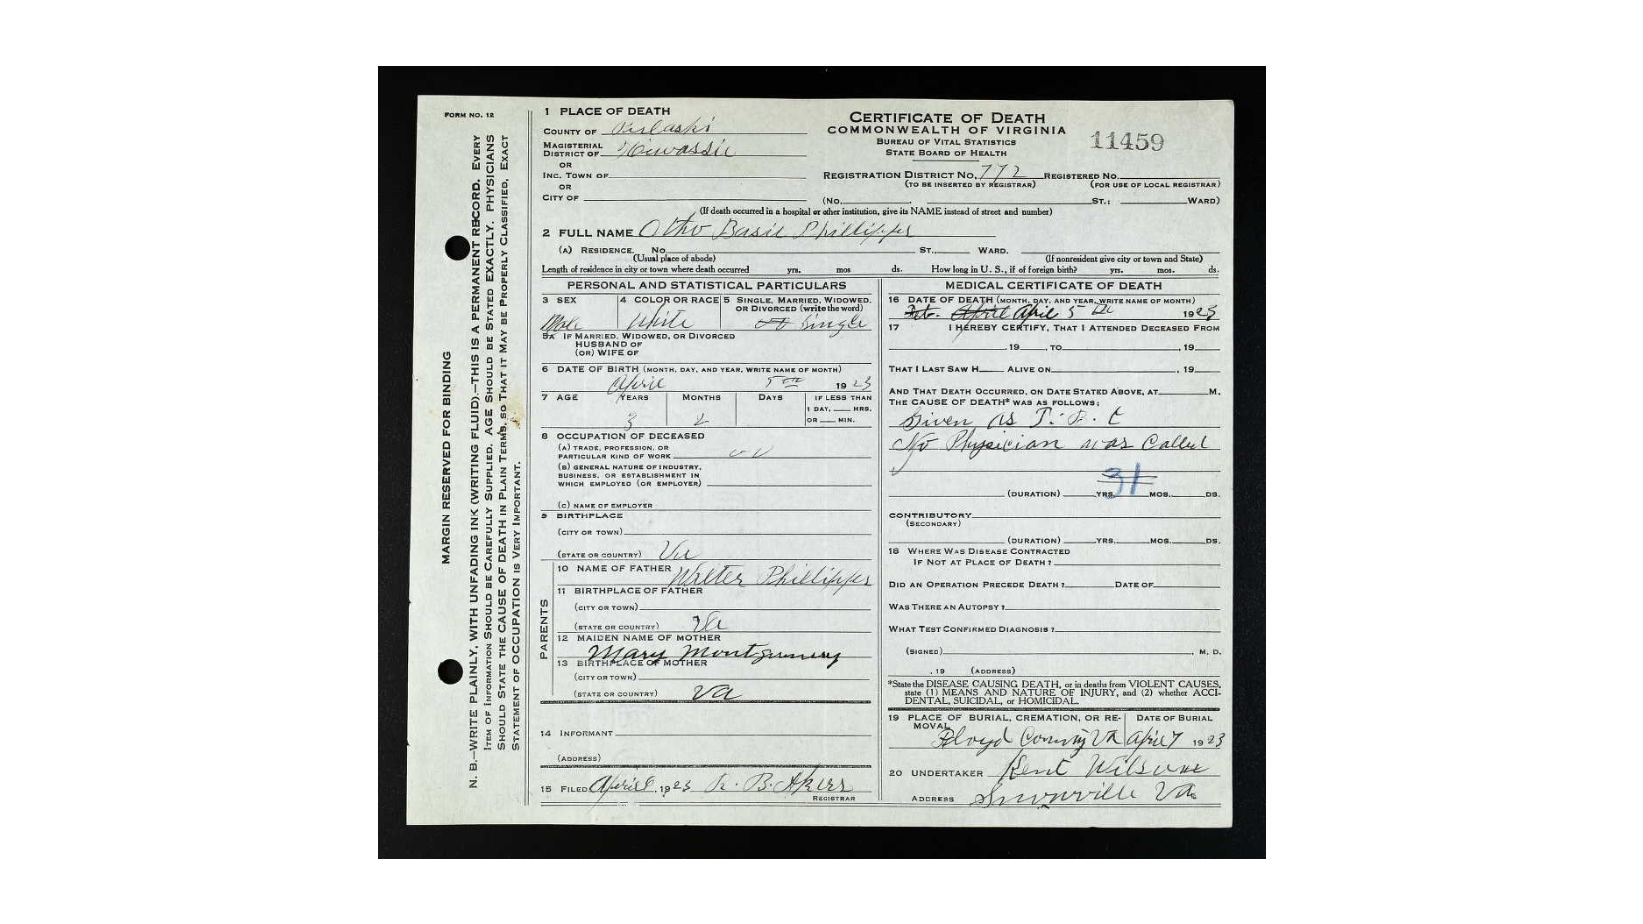 FORM NO. 12
MARGIN RESERVED FOR BINDING
N. B.—WRITE PLAINLY, WITH UNFADING INK (WRITING FLUID).—THIS IS A PERMANENT RECORD. EVERY
ITEM OF INFORMATION SHOULD BE CAREFULLY SUPPLIED. AGE SHOULD BE STATED EXACTLY. PHYSICIANS
SHOULD STATE THE CAUSE OF DEATH IN PLAIN TERMS, SO THAT IT MAY BE PROPERLY CLASSIFIED. EXACT
STATEMENT OF OCCUPATION IS VERY IMPORTANT.
1 PLACE OF DEATH
COUNTY OF Pulaski
MAGISTERIAL
DISTRICT OF Hiwassie
OR
INC. TOWN OF
OR
CITY OF
CERTIFICATE OF DEATH
COMMONWEALTH OF VIRGINIA
BUREAU OF VITAL STATISTICS
STATE BOARD OF HEALTH
11459
REGISTRATION DISTRICT NO. 772 REGISTERED NO.
(TO BE INSERTED BY REGISTRAR) (FOR USE OF LOCAL REGISTRAR)
(NO. ST.; WARD)
(If death occurred in a hospital or other institution, give its NAME instead of street and number)
2 FULL NAME Otho Basil Phillipps
(A) RESIDENCE. NO. ST. WARD.
(Usual place of abode) (If nonresident give city or town and State)
Length of residence in city or town where death occurred yrs. mos ds. How long in U. S., if of foreign birth? yrs. mos. ds.
PERSONAL AND STATISTICAL PARTICULARS
3 SEX 4 COLOR OR RACE 5 SINGLE, MARRIED, WIDOWED,
OR DIVORCED (write the word)
Male White Single
5A IF MARRIED, WIDOWED, OR DIVORCED
HUSBAND OF
(OR) WIFE OF
6 DATE OF BIRTH (MONTH, DAY, AND YEAR, WRITE NAME OF MONTH)
April 5th 1923
7 AGE YEARS MONTHS DAYS IF LESS THAN
1 DAY, HRS.
OR MIN.
3 2
8 OCCUPATION OF DECEASED
(A) TRADE, PROFESSION, OR
PARTICULAR KIND OF WORK
(B) GENERAL NATURE OF INDUSTRY,
BUSINESS, OR ESTABLISHMENT IN
WHICH EMPLOYED (OR EMPLOYER)
(C) NAME OF EMPLOYER
9 BIRTHPLACE
(CITY OR TOWN)
(STATE OR COUNTRY) Va
PARENTS
10 NAME OF FATHER Walter Phillipps
11 BIRTHPLACE OF FATHER
(CITY OR TOWN)
(STATE OR COUNTRY) Va
12 MAIDEN NAME OF MOTHER
Mary Montgumery
13 BIRTHPLACE OF MOTHER
(CITY OR TOWN)
(STATE OR COUNTRY) Va
14 INFORMANT
(ADDRESS)
15 FILED April 8, 1923 R. B. Akers
REGISTRAR
MEDICAL CERTIFICATE OF DEATH
16 DATE OF DEATH (MONTH, DAY, AND YEAR, WRITE NAME OF MONTH)
April April 5th 1923
17 I HEREBY CERTIFY, THAT I ATTENDED DECEASED FROM
, 19 , TO , 19
THAT I LAST SAW H ALIVE ON , 19
AND THAT DEATH OCCURRED, ON DATE STATED ABOVE, AT M.
THE CAUSE OF DEATH* WAS AS FOLLOWS:
Given as T. B. C
No Physician was Called
31
(DURATION) YRS. MOS. DS.
CONTRIBUTORY
(SECONDARY)
(DURATION) YRS. MOS. DS.
18 WHERE WAS DISEASE CONTRACTED
IF NOT AT PLACE OF DEATH?
DID AN OPERATION PRECEDE DEATH? DATE OF
WAS THERE AN AUTOPSY?
WHAT TEST CONFIRMED DIAGNOSIS?
(SIGNED) , M. D.
, 19 (ADDRESS)
*State the DISEASE CAUSING DEATH, or in deaths from VIOLENT CAUSES,
state (1) MEANS AND NATURE OF INJURY, and (2) whether ACCI-
DENTAL, SUICIDAL, or HOMICIDAL.
19 PLACE OF BURIAL, CREMATION, OR RE- DATE OF BURIAL
MOVAL
Floyd County Va April 7 1923
20 UNDERTAKER Kent Wilson
ADDRESS Snowville Va